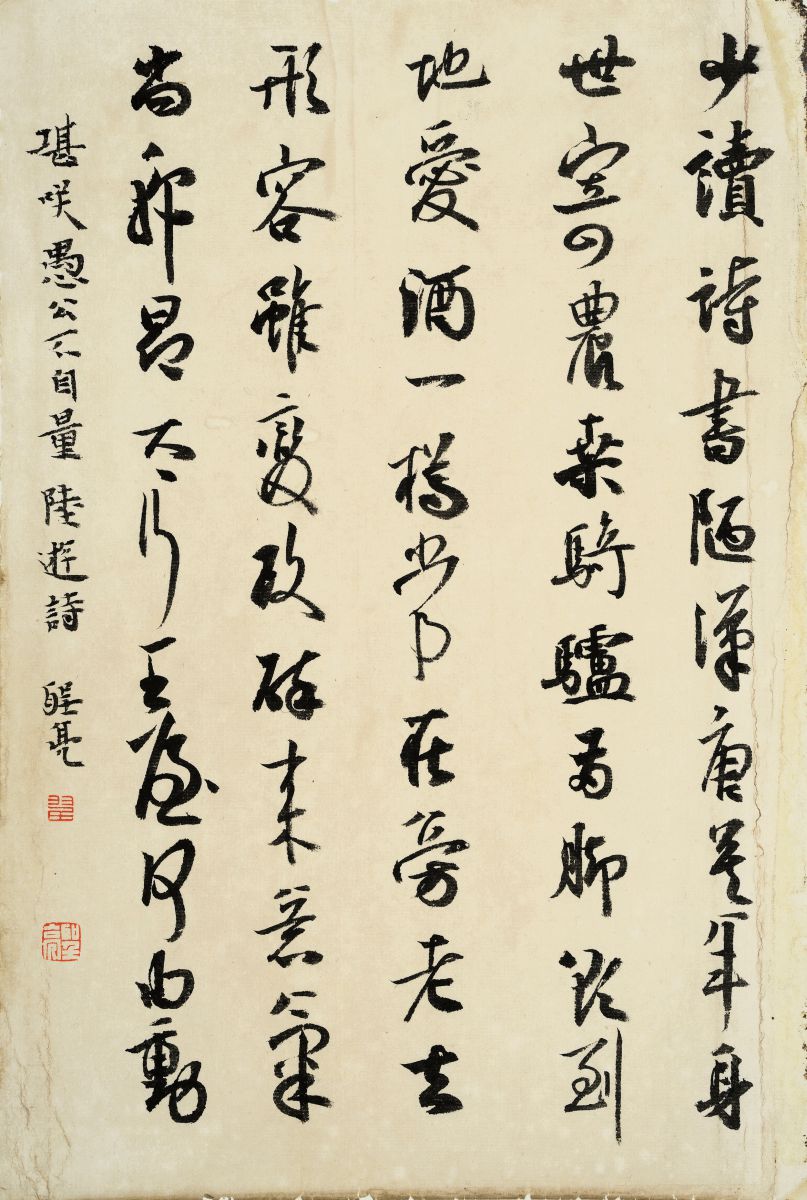 少讀詩書陋漢唐莫年身
世寄農桒騎驢兩脚欲到
地愛酒一樽常在旁老去
形容雖變改醉来意氣
尚軒昂太行王屋何由動
堪咲愚公不自量 陸遊詩 亮